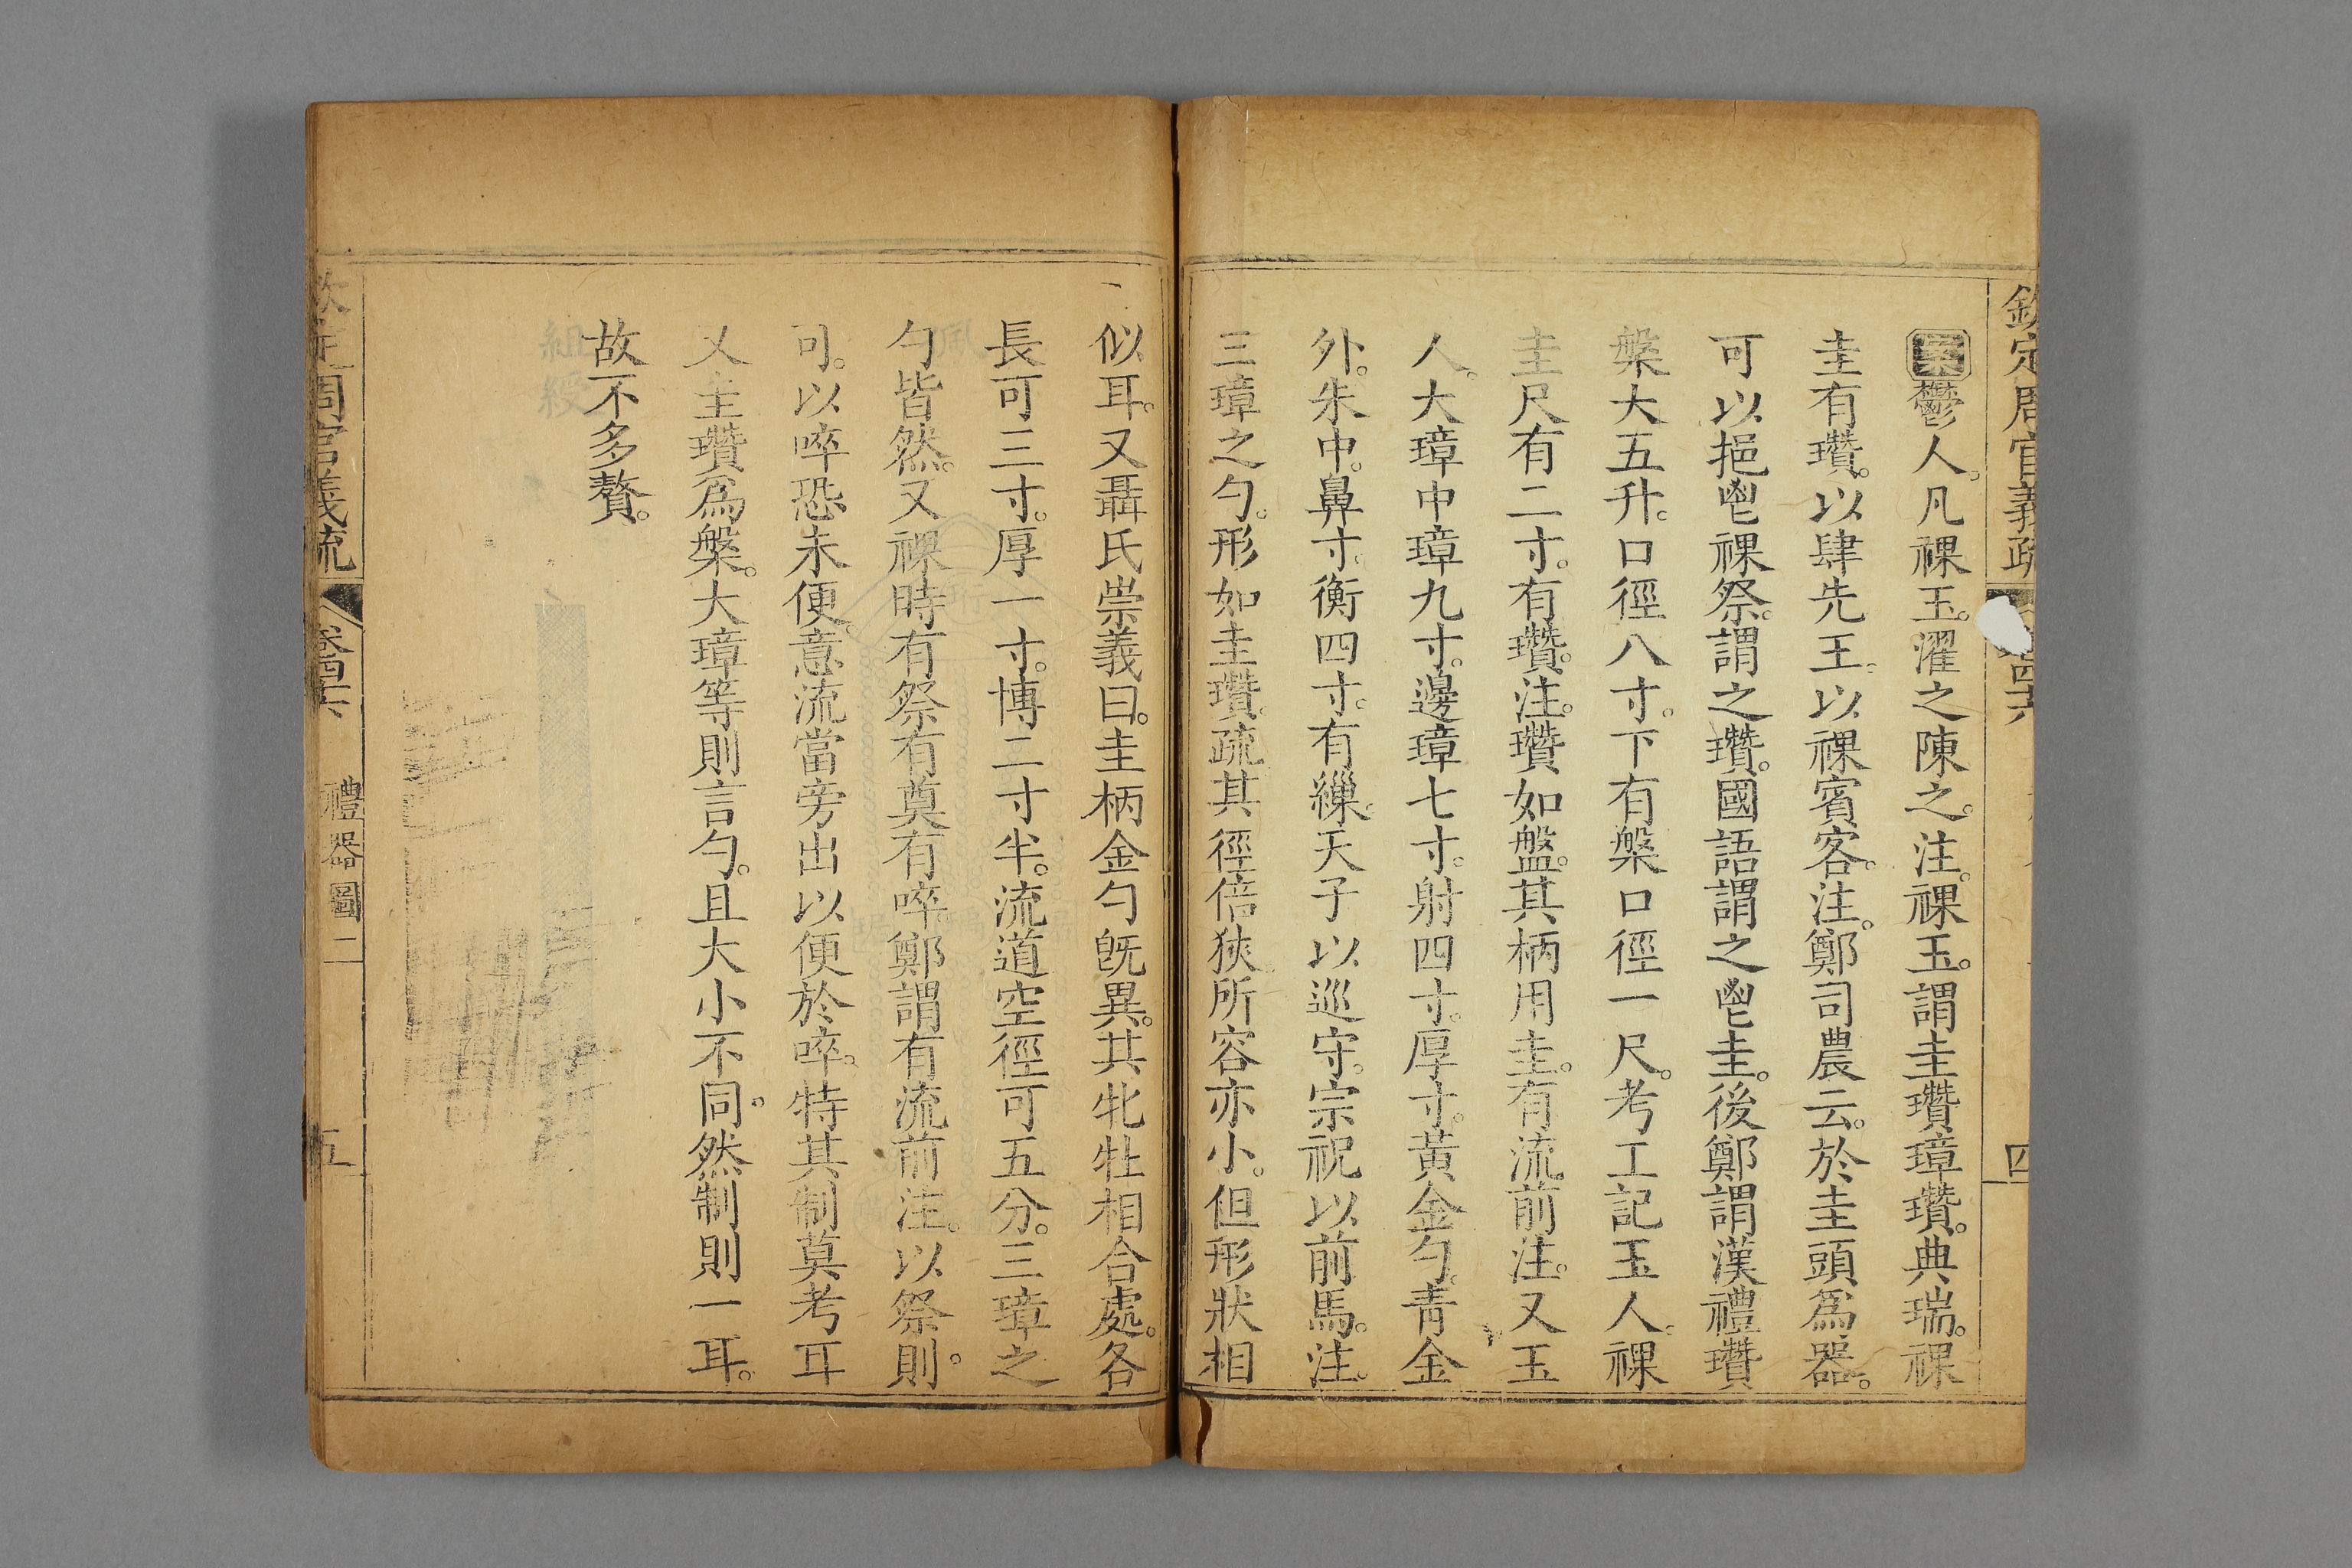 欽定周官義疏
四十六
四
案鬱人。凡祼玉。濯之陳之。注。祼玉。謂圭瓚璋瓚。典瑞。祼
圭有瓚。以肆先王。以祼賓客。注。鄭司農云。於圭頭爲器。
可以挹鬯祼祭。謂之瓚。國語謂之鬯圭。後鄭謂漢禮瓚
槃大五升。口徑八寸。下有槃口徑一尺。考工記玉人。祼
圭尺有二寸。有瓚。注。瓚如盤。其柄用圭。有流前注。又玉
人。大璋中璋九寸。邊璋七寸。射四寸。厚寸。黃金勺。青金
外。朱中。鼻寸。衡四寸。有繅。天子以巡守。宗祝以前馬。注。
三璋之勺。形如圭瓚。疏其徑倍狹所容亦小。但形狀相
似耳。又聶氏崇義曰。圭柄金勺旣異。其牝牡相合處。各
長可三寸。厚一寸。博二寸半。流道空徑可五分。三璋之
勺皆然。又祼時有祭有奠有啐。鄭謂有流前注。以祭則。
可。以啐恐未便。意流當旁出以便於啐。特其制莫考耳
又圭瓚爲槃。大璋等則言勺。且大小不同。然制則一耳。
故不多贅。
欽定周官義疏
卷四十六
禮器圖二
五